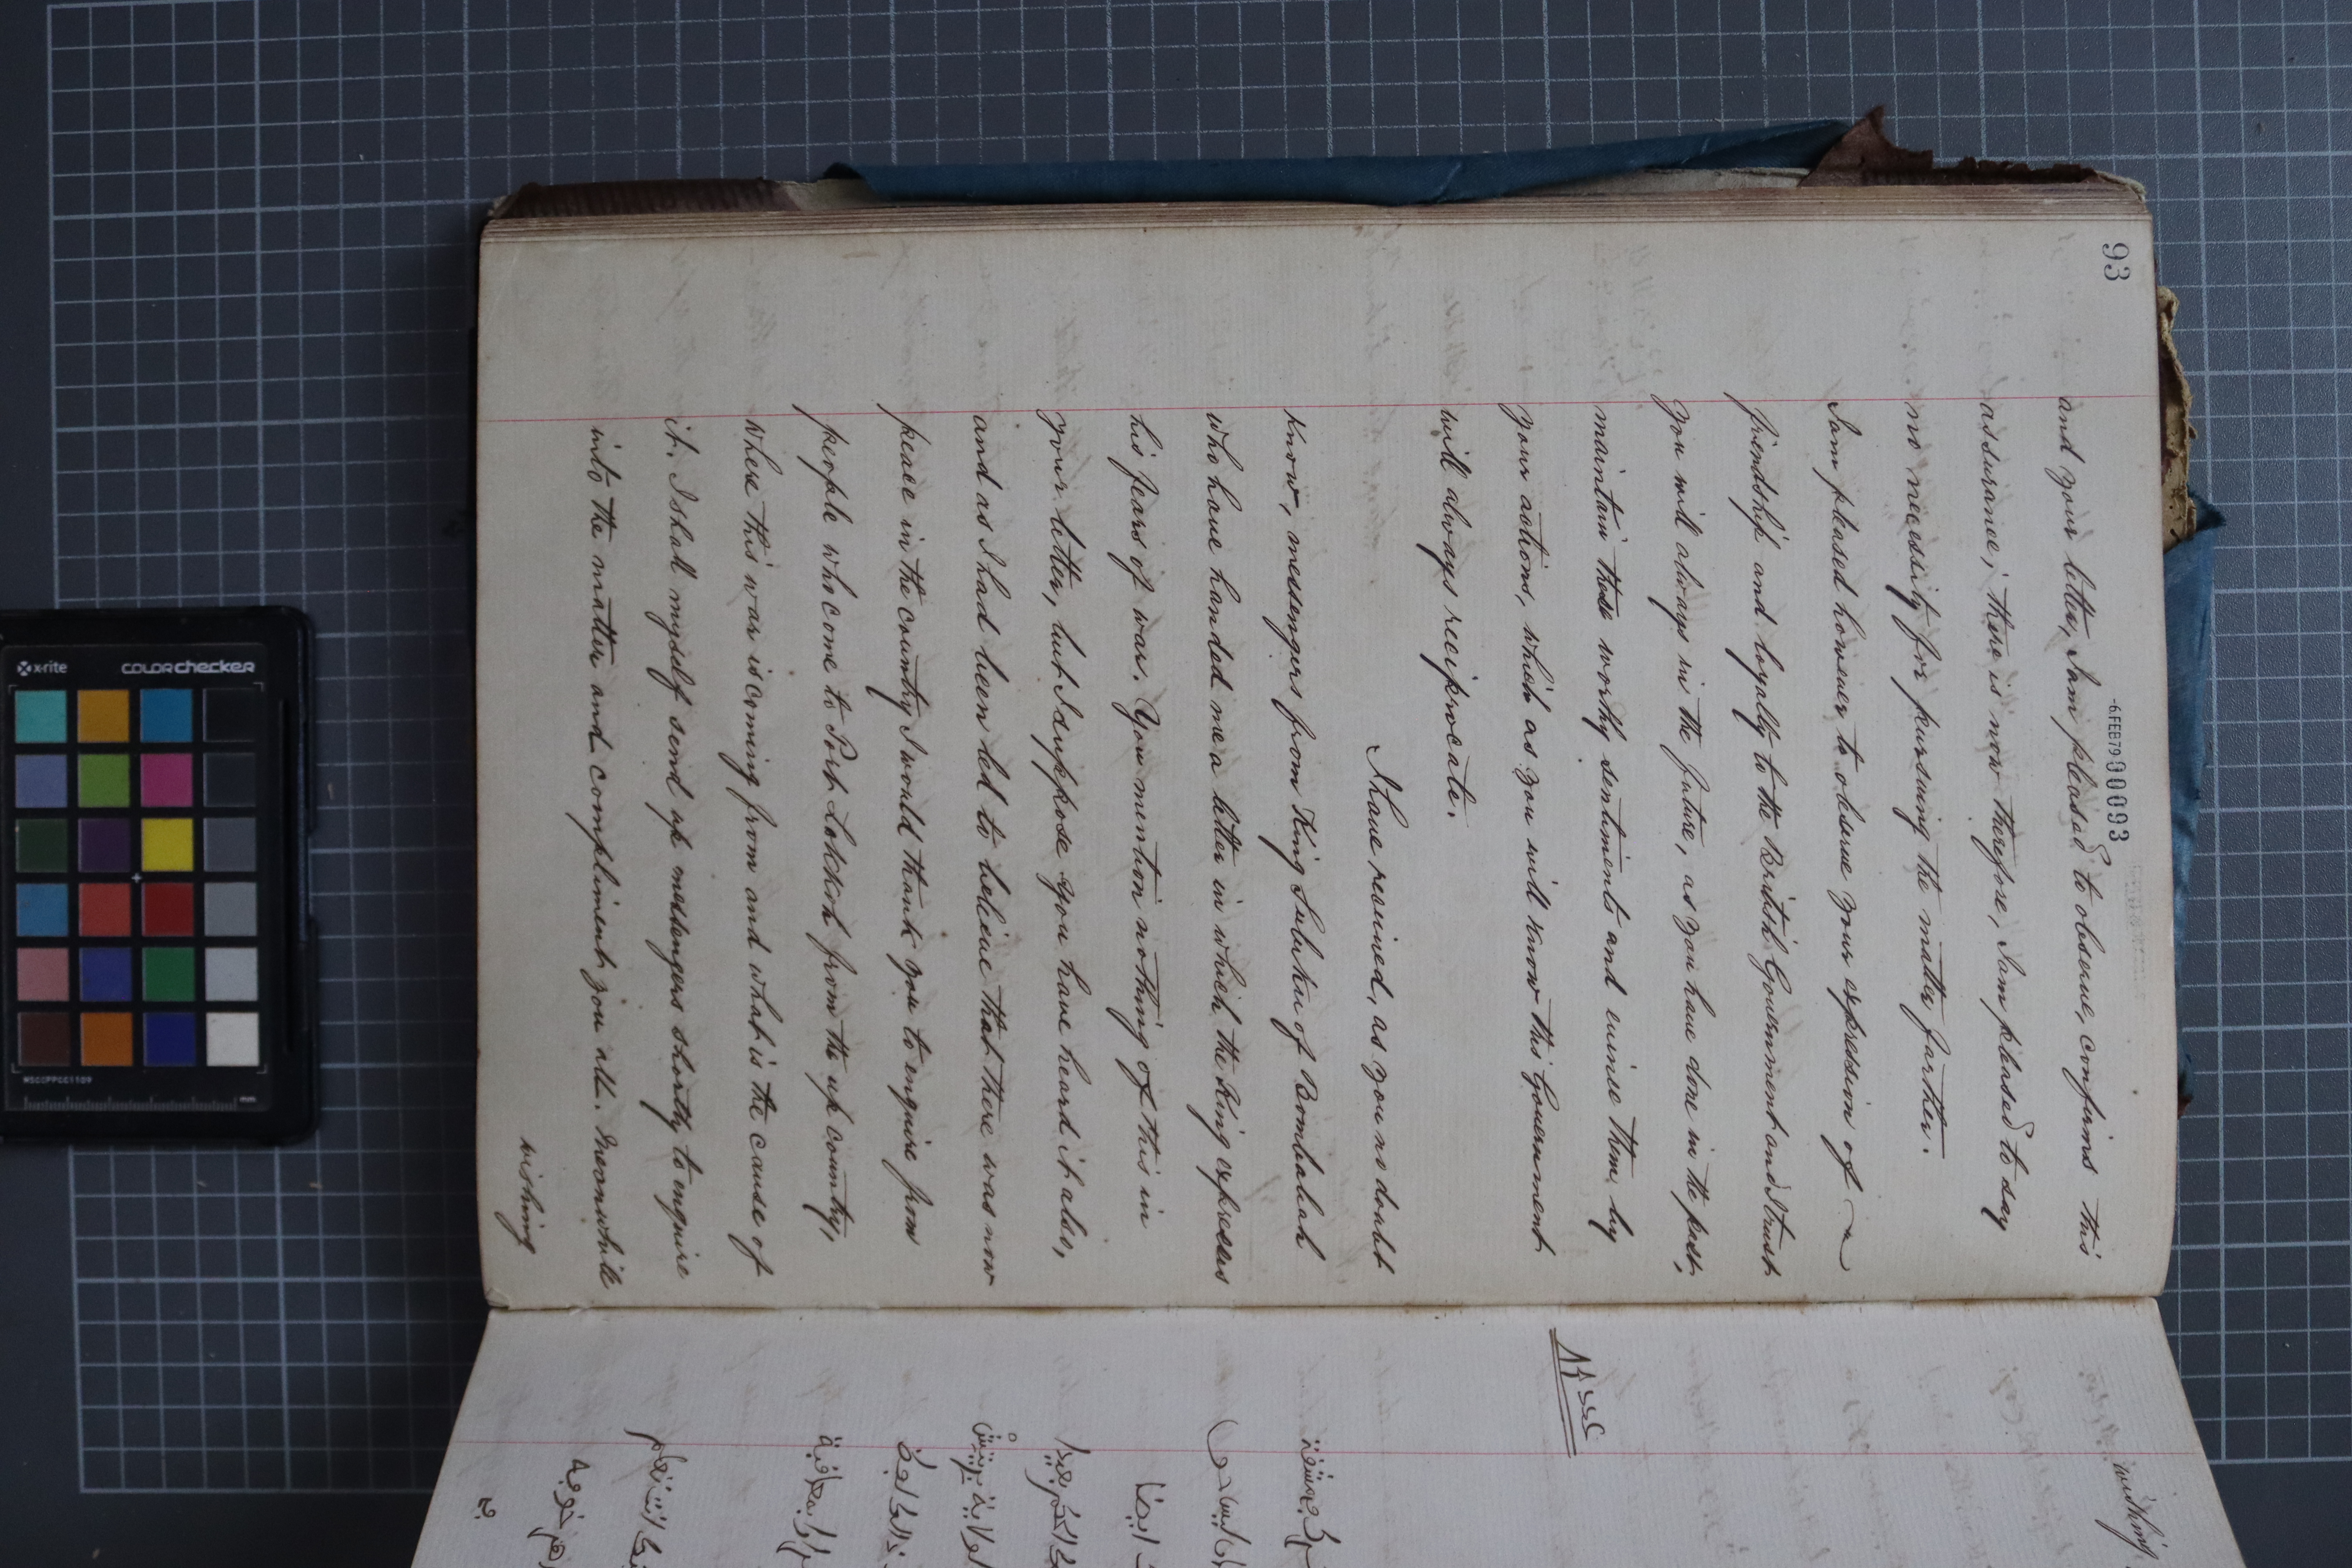 93
-6FEB79 000093
and your letter, I am pleased to observe, confirms this
assurance; there is now therefore, I am pleased to say
no necessity for pursuing the matter further.
I am pleased however to observe your expression of
friendship and loyalty to the British Government and I trust
you will always in the future, as you have done in the past,
maintain these worthy sentiments and evince them, by
your actions, which as you will know this Government
will always reciprocate.
I have received, as you no doubt
know, messengers from King Suluku of Bombalah
who have handed me a letter in which the King expresses
his fears of war. You mention nothing of this in
your letter, but I suppose you have heard it also,
and as I had been led to believe that there was now
peace in the country I would thank you to enquire from
people who come to Port Lokkoh from the up country,
where this war is coming from and what is the cause of
it. I shall myself send up messengers shortly to enquire
into the matter and compliment you all. Meanwhile
wishing
wishing
x-rite
COLORchecker
MSCCPPCC1109
mm